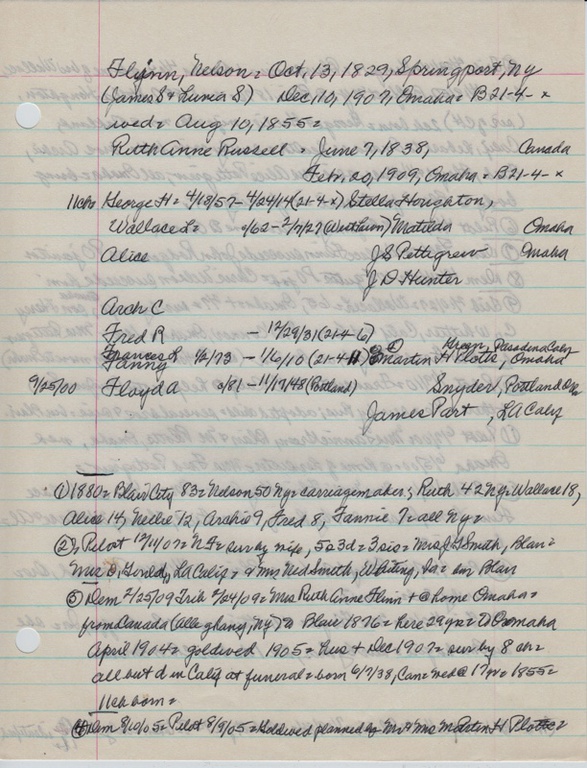 Flynn, Nelson = Oct, 13, 1829, Springport, Ny
(James S & Lunia S) Dec, 10, 1907, Omaha = B21-4-x
wed = Aug 10, 1855 =
Ruth Anne Russell = June 7, 1838, Canada
Feb. 20, 1909, Omaha = B21-4-x
11chs George H = 4/18/57 - 4/24/14 (21-4-x) Stella Houghton,
Wallace L = /62 - 2/7/27 Matilda Omaha
Alice J S Pettigrew Omaha
J D Hunter
Arch C
Fred R - 12/29/31 (21-4-6)
Frances L Fanny 1/2/73 - 1/6/10 (21-4- Martin H Plotts, Omaha Pasadena Calif
9/25/00 Floyd A /81 - 11/17/48 (Portland) Snyder, Portland Ore
James Part, LA Calif
① 1880 = Blair City 83 = Nelson 50 Ny = carriagemaker; Ruth 42 Ny = Wallace 18,
Alice 14, Nellie 12, Archie 9, Fred 8, Fannie 7 = all Ny =
②, Pilot 12/11/07 = N F = sur by wife, 5s 3d = 3 sis = Mrs J S Smith, Blair =
Mrs D, Gould, LA Calif = & Mrs Ned Smith, Whiting, Ia = bur Blair
③ Dem 2/25/09 Trib 2/24/09 = Mrs Ruth Anne Flinn + @ home Omaha =
from Canada (Alleghany, Ny) to Blair 1876 = here 29yrs = to Omaha
April 1904 = goldwed 1905 = hus + Dec 1907 = sur by 8 ch =
all but d in Calif at funeral = born 6/7/38, Can = wed @ 17yr = 1855 =
11ch born =
④ Dem 8/10/05 = Pilot 8/9/05 = Goldwed planned by Mr & Mrs Martin H Plotts =